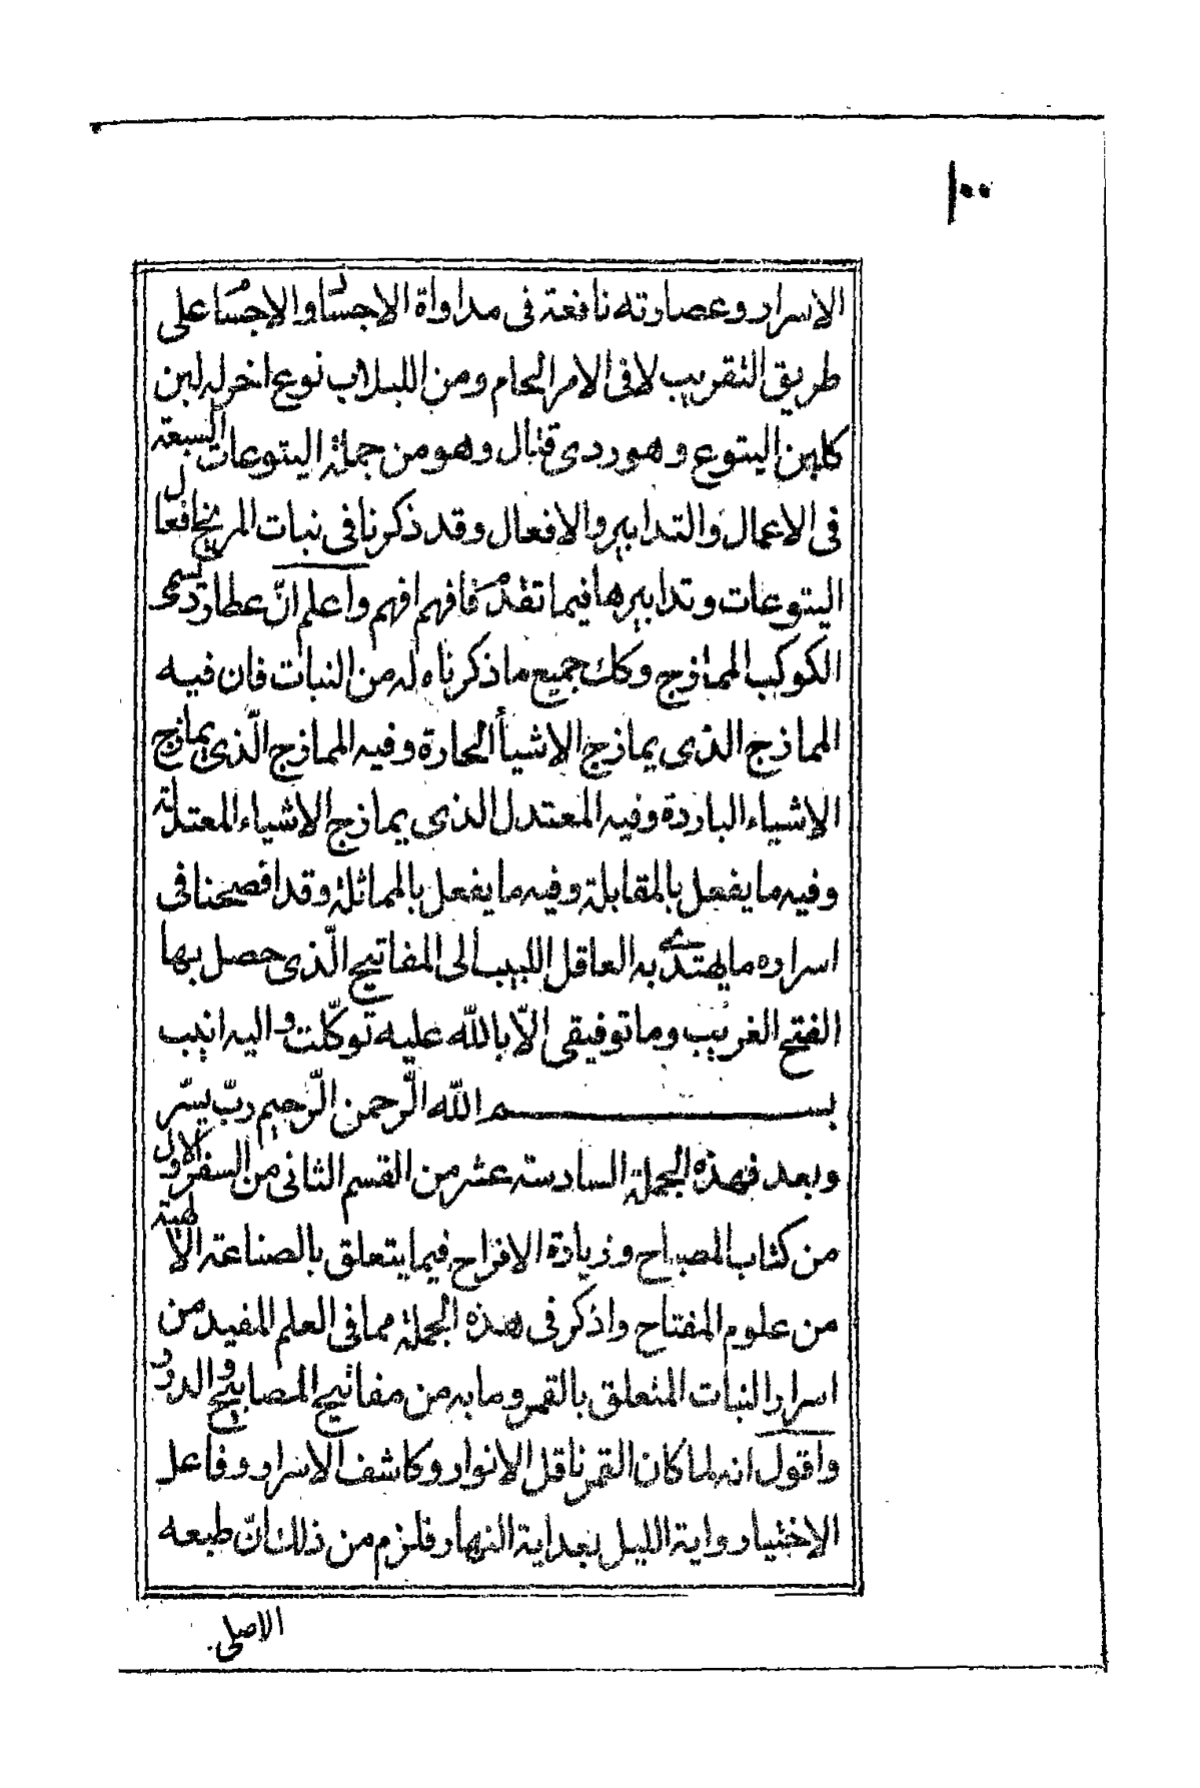 ١٠٠
الاسرار وعصارته نافعة فى مداواة الاجساد والاجسام على
طريق التقريب لا فى الامر الحام ومن اللبلاب نوع اخر له لبن
كلبن اليتوع وهو ردى قتال وهو من جملة اليتوعات السبعة
فى الاعمال والتدابير والافعال وقد ذكرنا فى نبات المريخ افعال
اليتوعات وتدابيرها فيما تقدم فافهم افهم واعلم انّ عطارد يسمى
الكوكب الممازج وكك جميع ما ذكرناه له من النبات فان فيه
الممازج الذى يمازج الاشيأ الحارة وفيه الممازج الّذى يمازج
الاشياء الباردة وفيه المعتدل الذى يمازج الاشياء المعتدلة
وفيه ما يفعل بالمقابلة وفيه ما يفعل بالمماثلة وقد افصحنا فى
اسراره ما يهتدى به العاقل اللبيب الى المفاتيح الّذى حصل بها
الفتح الغريب وما توفيقى الاّ بالله عليه توكّلت واليه انيب
بسم الله الرّحمن الرّحيم ربّ يسّر
وبعد فهذه الجملة السادسة عشر من القسم الثانى من السفر الاول
من كتاب المصباح وزيادة الافراح فيما يتعلق بالصناعة الالهية
من علوم المفتاح واذكر فى هذه الجملة مما فى العلم المفيد من
اسرار النبات المتعلق بالقمر وما به من مفاتيح المصابيح والدور
واقول انه لما كان القمر ناقل الانوار وكاشف الاسرار وفاعل
الاختيار واية الليل بعد اية النهار فلزم من ذلك انّ طبعه
الاصلى